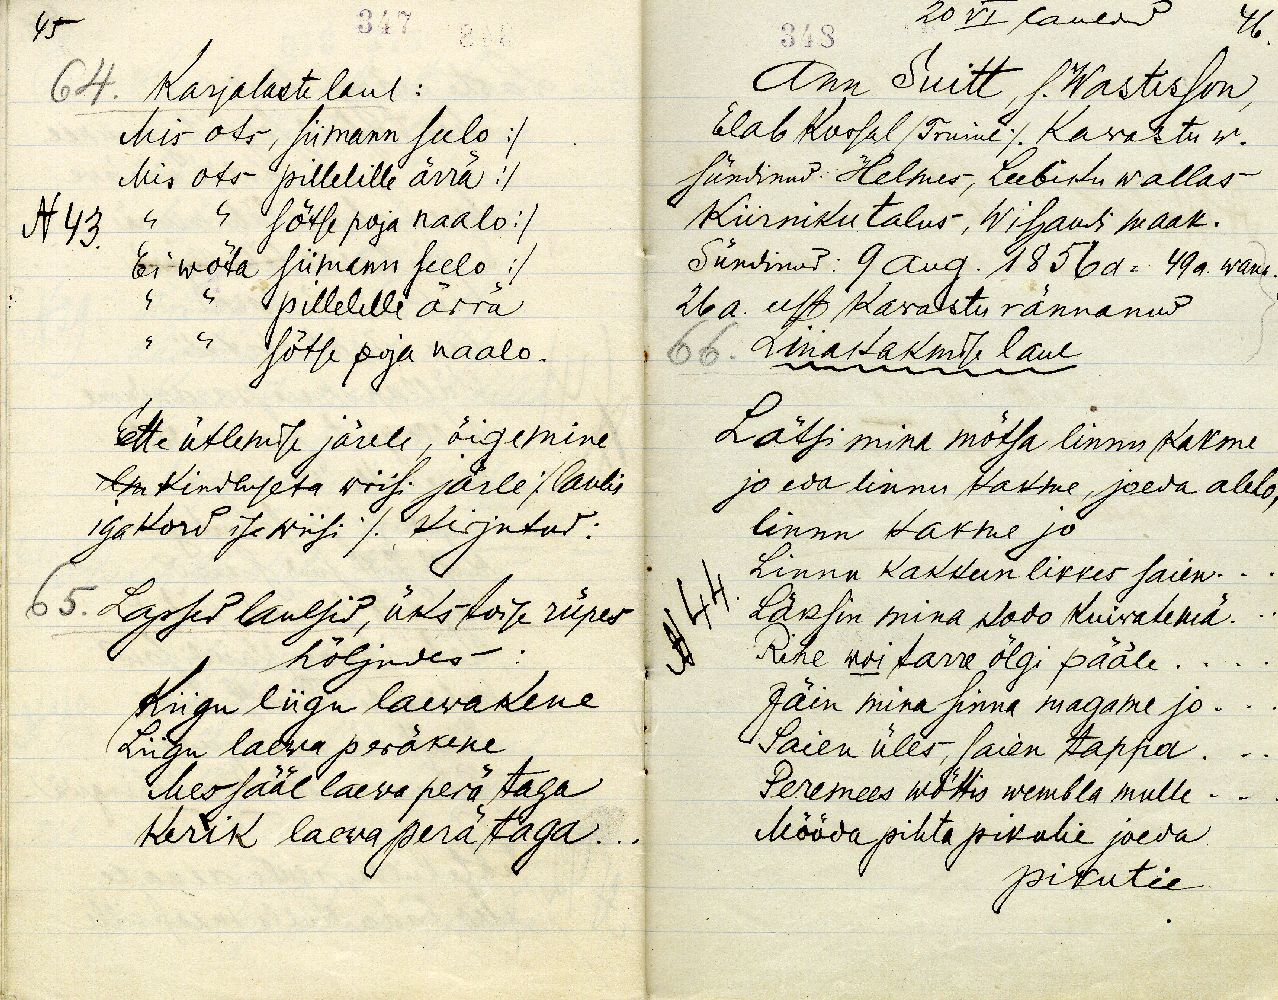 45
347
64. Karjalaste laul:
Mis ots, siimann seelo :/
Mis ots pillelille ärrä :/
N 43.
" " sõtse poja naalo :/
Ei wõta siimann seelo :/
" " pillelille ärrä
" " sõtse poja naalo.
Ette ütlemise järele, õigemine
kindluseta wiisi järle /: laulis
iga kord ise wiisi :/. kirjutud:
65. Lapsed laulsid, üks toise rüpes
hõljudes:
Kiigu liigu laewakene
Liigu laewa peräkene
Mes sääl laewa perä taga
Kerik laewa perä taga...
20 VI lauldud
46.
348
Ann Suitt, s. Wastisson,
Elab Kossal /Truine/. Kawastu w.
sündinud: Helmes, Leebiku wallas
Kiirniku talus, Wiljandi maak.
Sündinud: 9 Aug. 1856 a = 49 a. wana.
26 a. eest Kawastu rännanud
66. Linakakmise laul
Lätsi mina mõtsa linnu kakme
jo eda linnu kakme, joeda alelo,
linnu kakme jo
N 44.
Linnu kakken likkes saien...
Läksin mina sloo kuiwatemä..
Rihe woi tarre õlgi pääle....
Jäin mina sinna magame jo...
Saien üles, saien tappa...
Peremees wõttis wembla mulle...
Mööda pihta pikutie joeda
pikutie